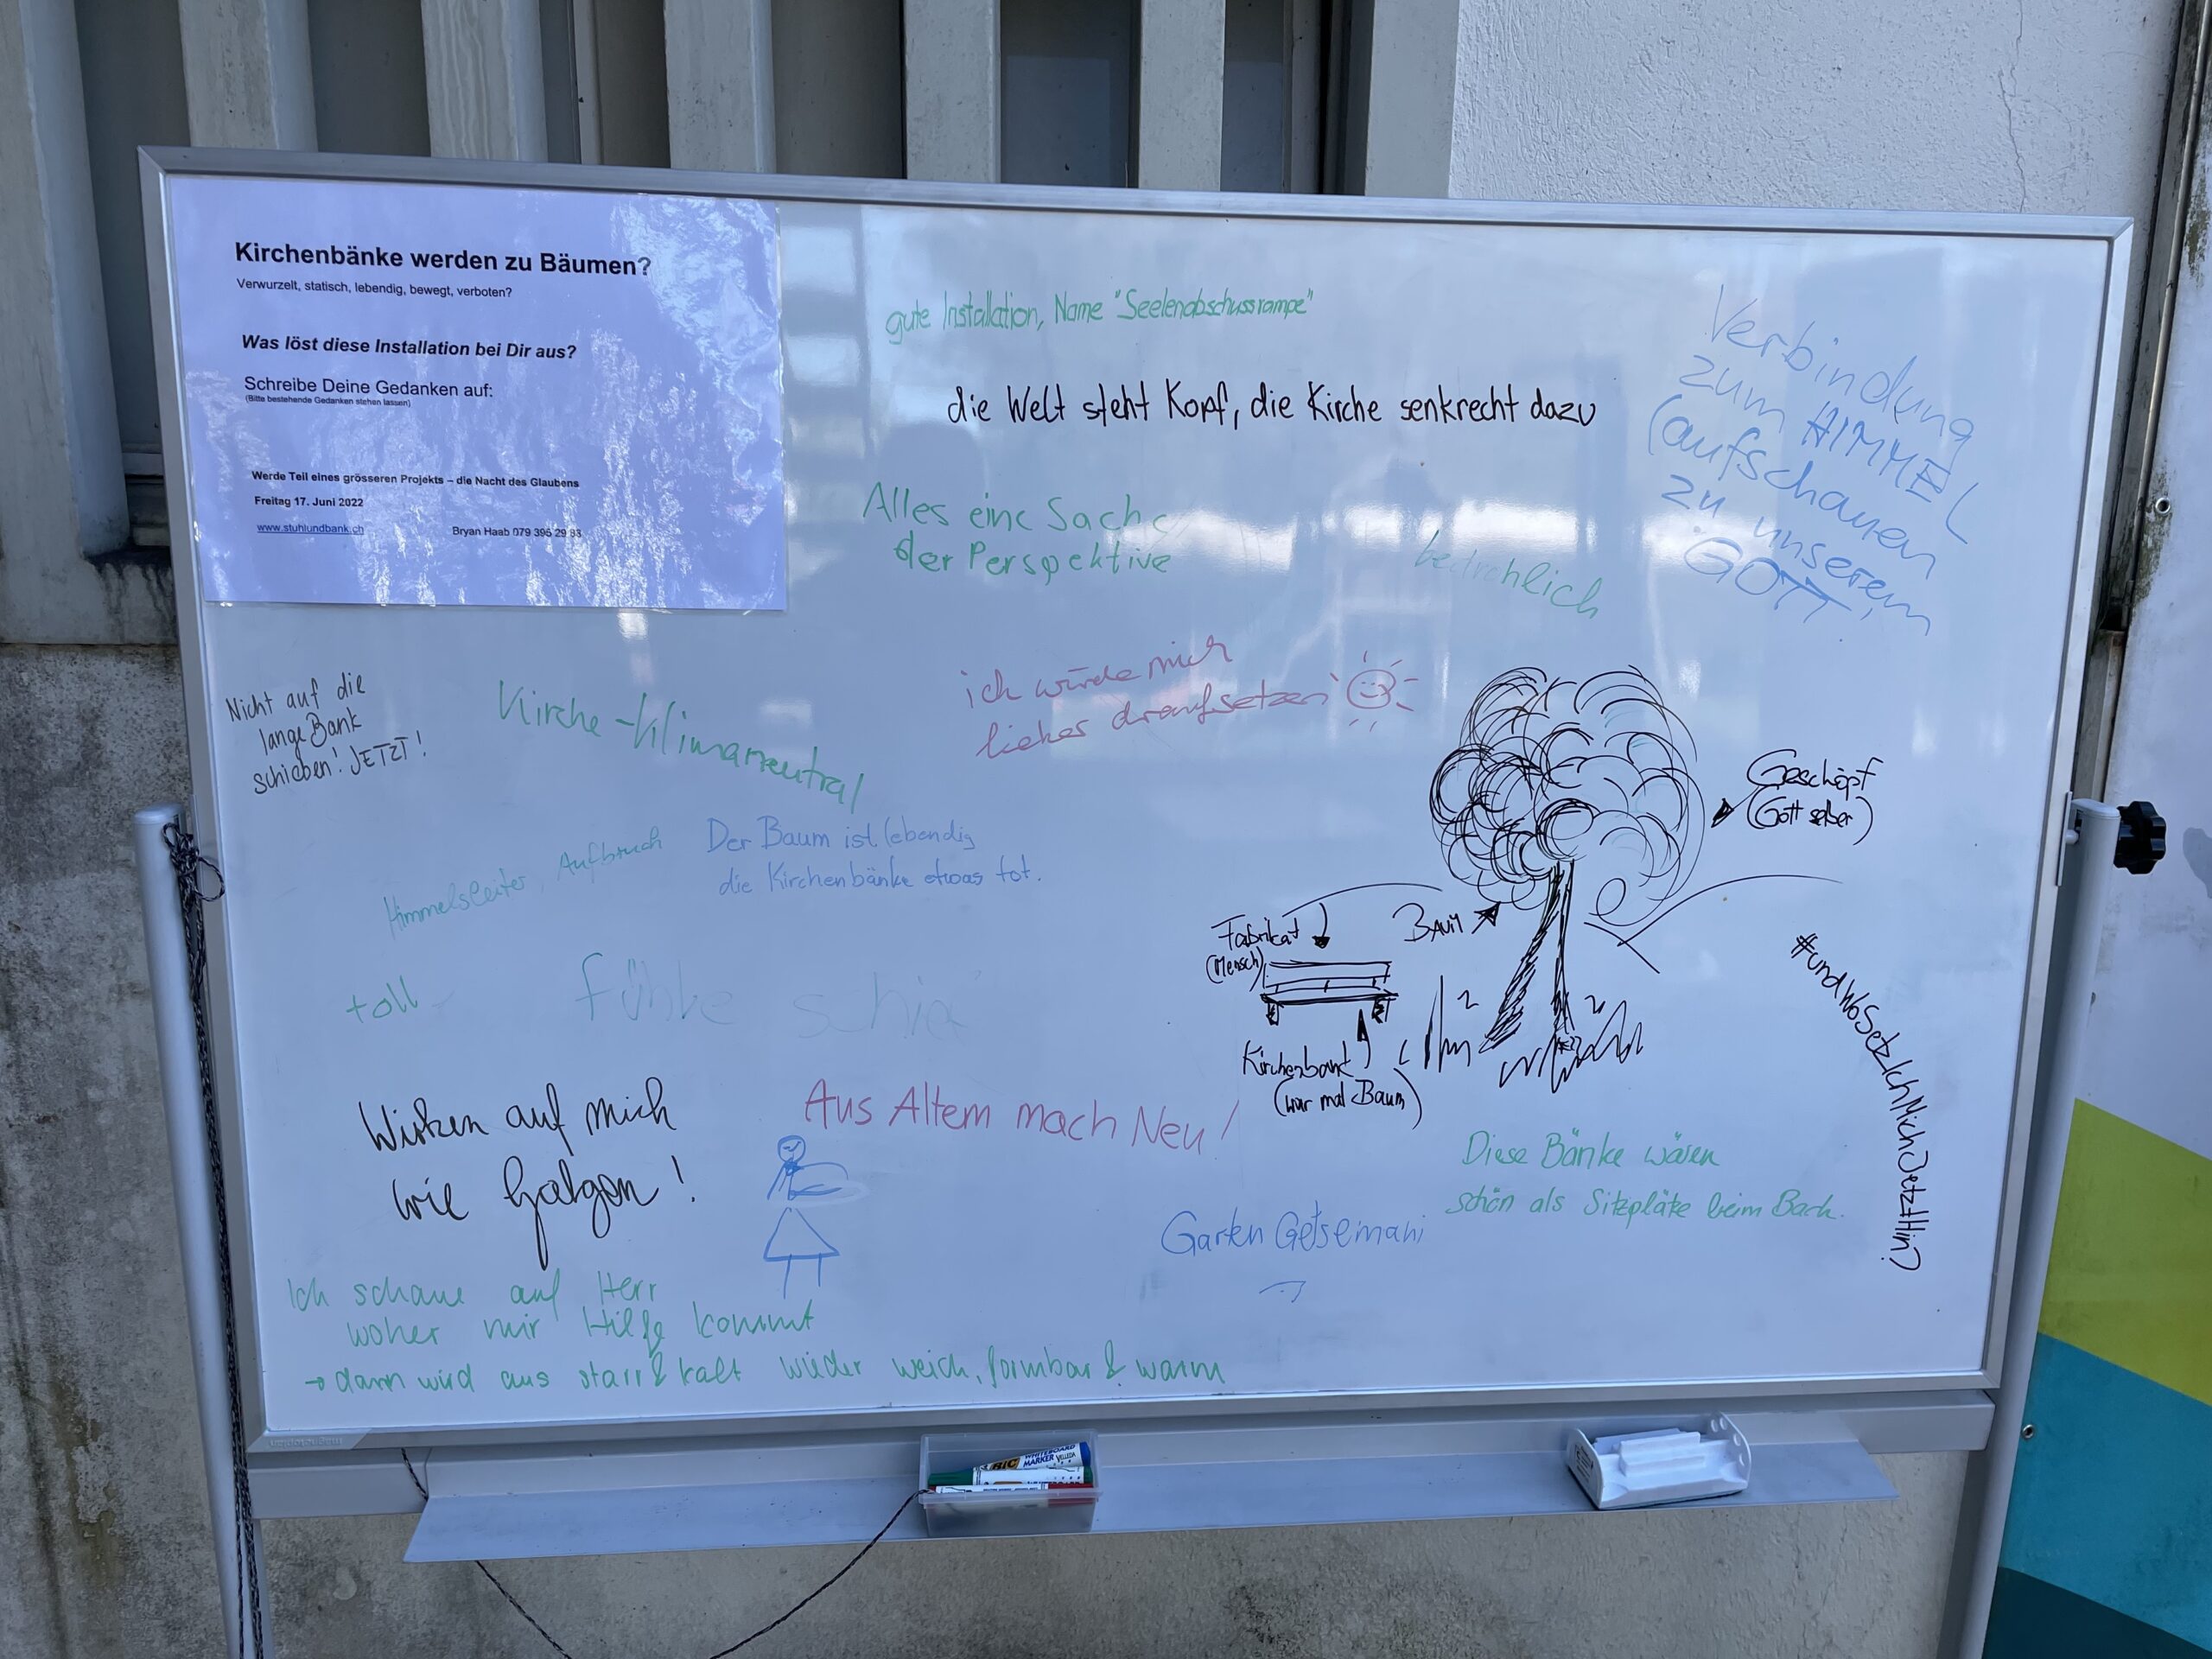 Kirchenbänke werden zu Bäumen?
Verwurzelt, statisch, lebendig, bewegt, verboten?
Was löst diese Installation bei Dir aus?
Schreibe Deine Gedanken auf:
(Bitte bestehende Gedanken stehen lassen)
Werde Teil eines grösseren Projekts – die Nacht des Glaubens
Freitag 17. Juni 2022
www.stuhlundbank.ch Bryan Haab 079 395 29 93
gute Installation, Name "Seelenabschussrampe"
die Welt steht Kopf, die Kirche senkrecht dazu
Verbindung
zum HIMMEL
(aufschauen
zu unserem
GOTT!
Alles eine Sache
der Perspektive
bedrohlich
Nicht auf die
lange Bank
schieben! JETZT!
Kirche - Klimaneutral
ich würde mich
lieber draufsetzen
Himmelsleiter, Aufbruch
Der Baum ist lebendig
die Kirchenbänke etwas tot.
Geschöpf
(Gott selber)
Fabrikat
(Mensch)
BAUM
Kirchenbank
(war mal Baum)
#undWoSetzIchMichJetztHin?
toll
Wirken auf mich
wie Galgen!
Aus Altem mach Neu!
Diese Bänke wären
schön als Sitzplätze beim Bach.
Garten Getsemani
Ich schaue auf Herr
woher mir Hilfe kommt
→ dann wird aus starr & kalt wieder weich, formbar & warm
BIC WHITEBOARD
MARKER VELLEDA